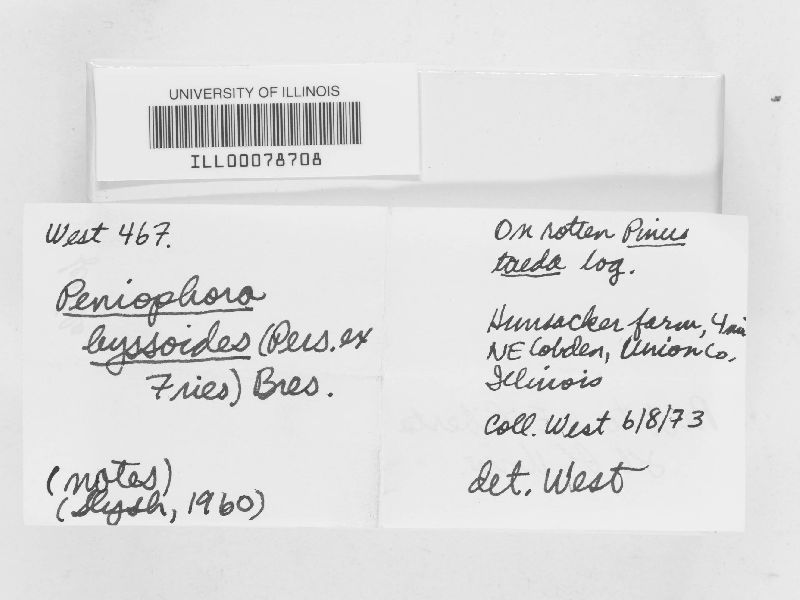 UNIVERSITY OF ILLINOIS
ILL00078708
West 467.
Peniophora
byssoides (Pers. ex
Fries) Bres.
(notes)
(Slysh, 1960)
On rotten Pinus
taeda log.
Hunsacker farm, 4 mi
NE Cobden, Union Co,
Illinois
Coll. West 6/8/73
det. West